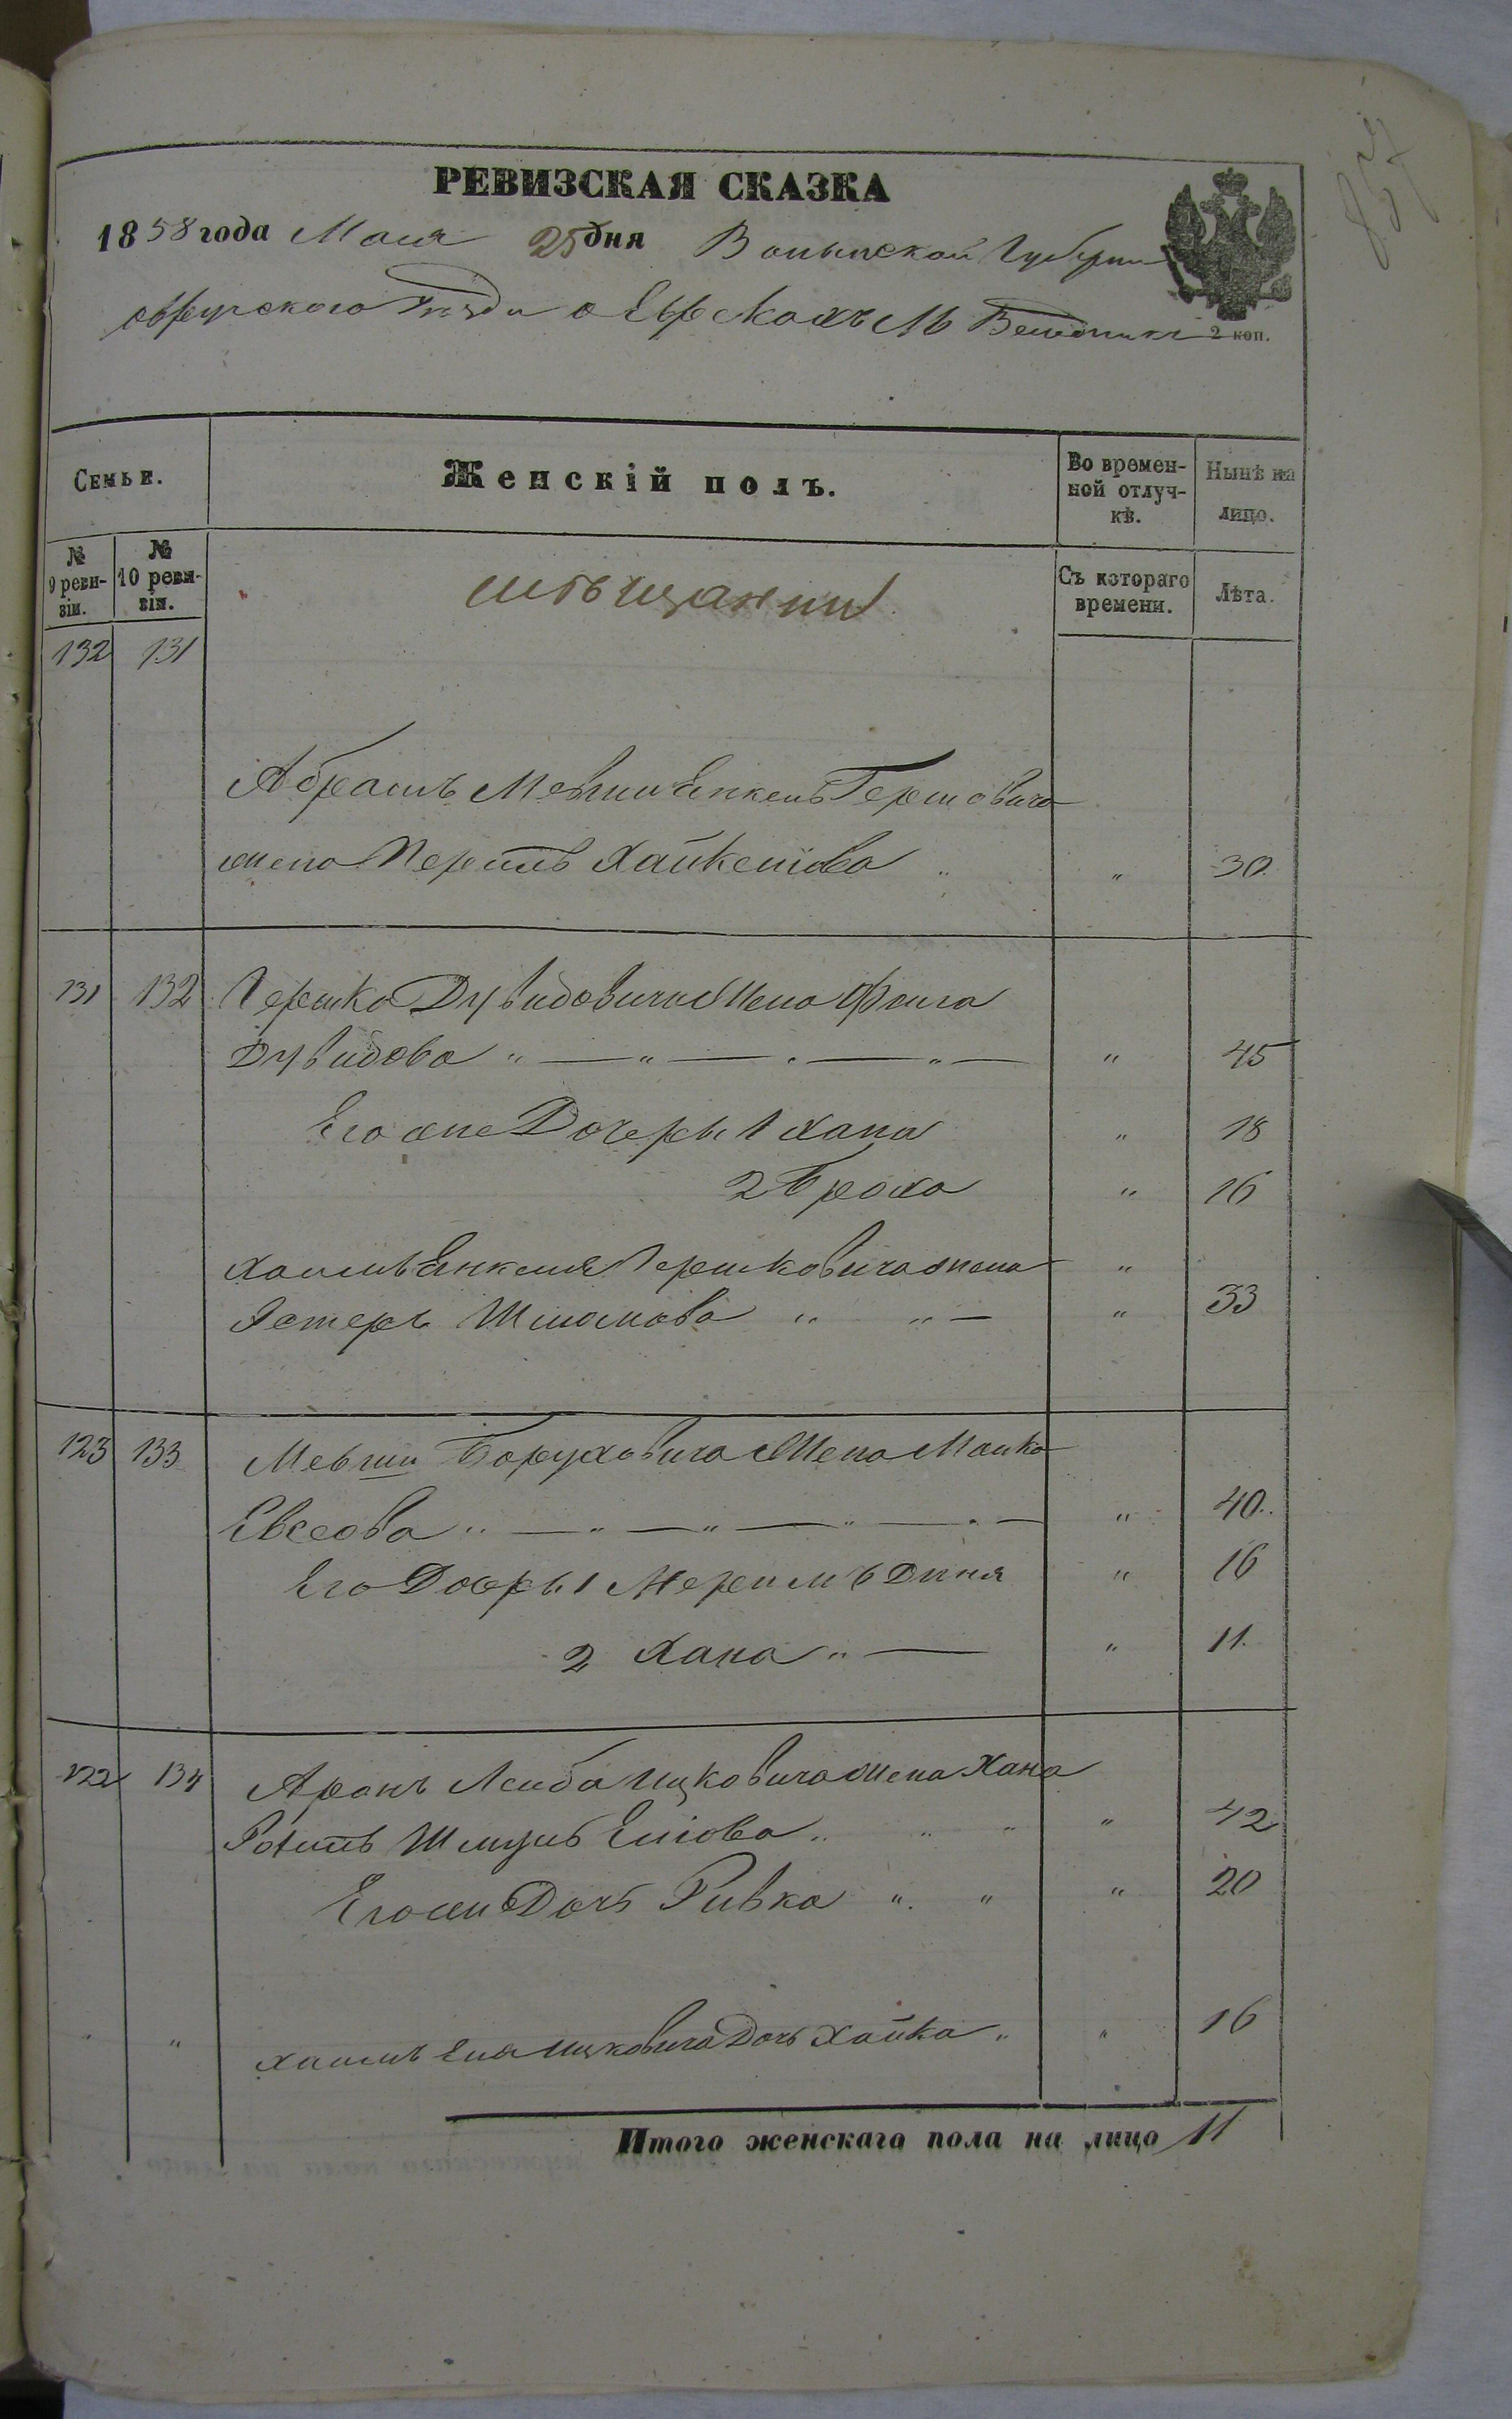 РЕВИЗСКАЯ СКАЗКА
1858 года Мая 25 дня Волынской Губернии
Овручского Уезда о Евреяхъ М
2 коп.
Семьи.
Женскій полъ.
Во времен-
ной отлуч-
кѣ.
Нынѣ на
лицо.
№
9 реви-
зіи.
№
10 реви-
зіи.
мѣщанин
Съ котораго
времени.
Лѣта.
132 131
Абрамъ Мевши Янкель Гершовича
жена Перель „ 30.
131 132 Гершка Дувидовича Жена Фейга
Дувидова „ — „ — „ — „ — „ 45
Его же Дочеры 1 Хана „ 18
2 Броха „ 16
Хаимъ Янкеля Гершковича жена „
Эстеръ Шмаиова „ „ — „ 33
123 133 Мевши Боруховича Жена Малка
Евсеова „ — „ — „ — „ — „ — „ 40.
Его Доеры 1 Диня „ 16
2 Хана „ — „ 11.
122 134 Аронъ Лейба Ицковича жена Хана
Шмуль Еліова „ „ „ „ 42
Его же Дочь Ривка „ „ „ 20
„ „ Хаимъ Еля Ицковича Дочь Хайка „ „ 16
Итого женскаго пола на лицо 11